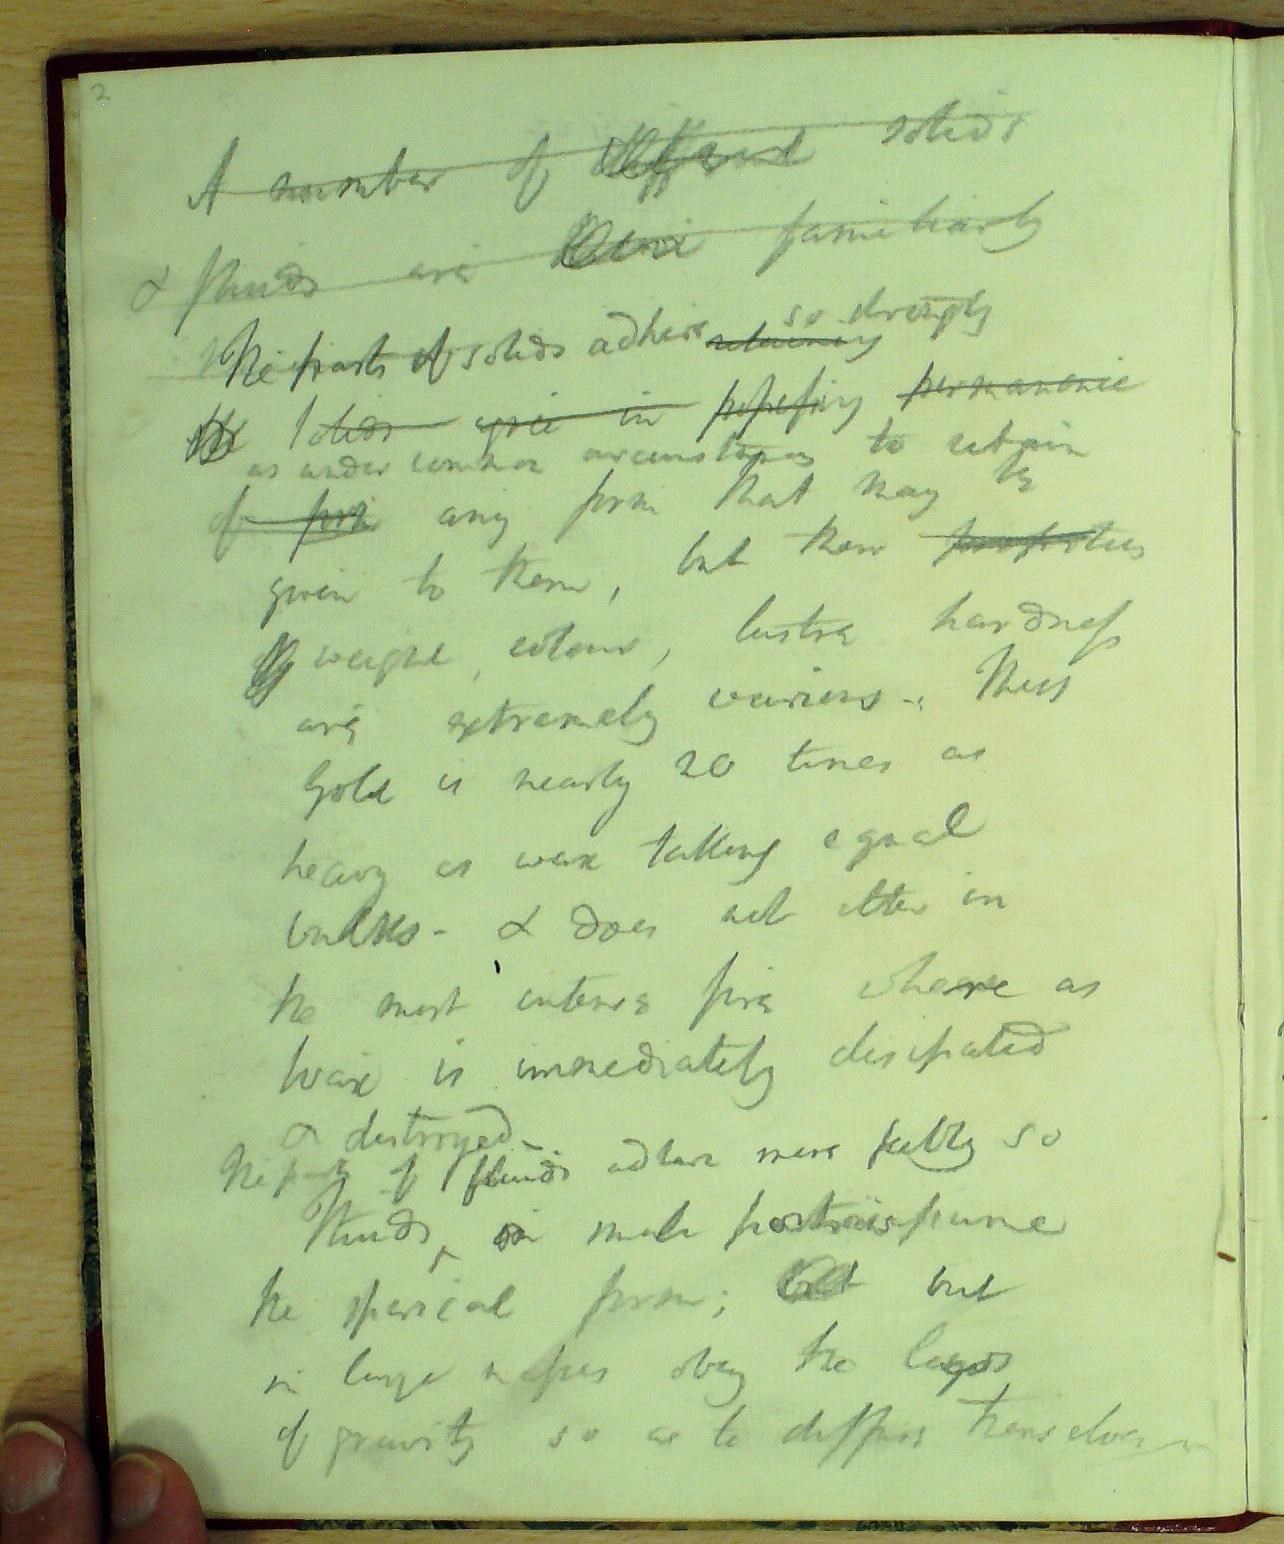 2
A number of different solids
& fluids are familiarly
The parts of solids adhere so strongly
retaining
Solids agree in possessing permanence
as under common circumstances to retain
of form any form that may be
given to them, but their properties
weight, colour, lustre hardness
are extremely various -: Thus
Gold is nearly 20 times as
heavy as wax taking equal
bulks - & does not alter in
the most intense fire where as
wax is immediately disipated
& destroyed -
The parts of fluids adhere more feebly so
Fluids, in small portions assume
the sperical form; but but
in large masses obey the laws
of gravity so as to diffuse themselves